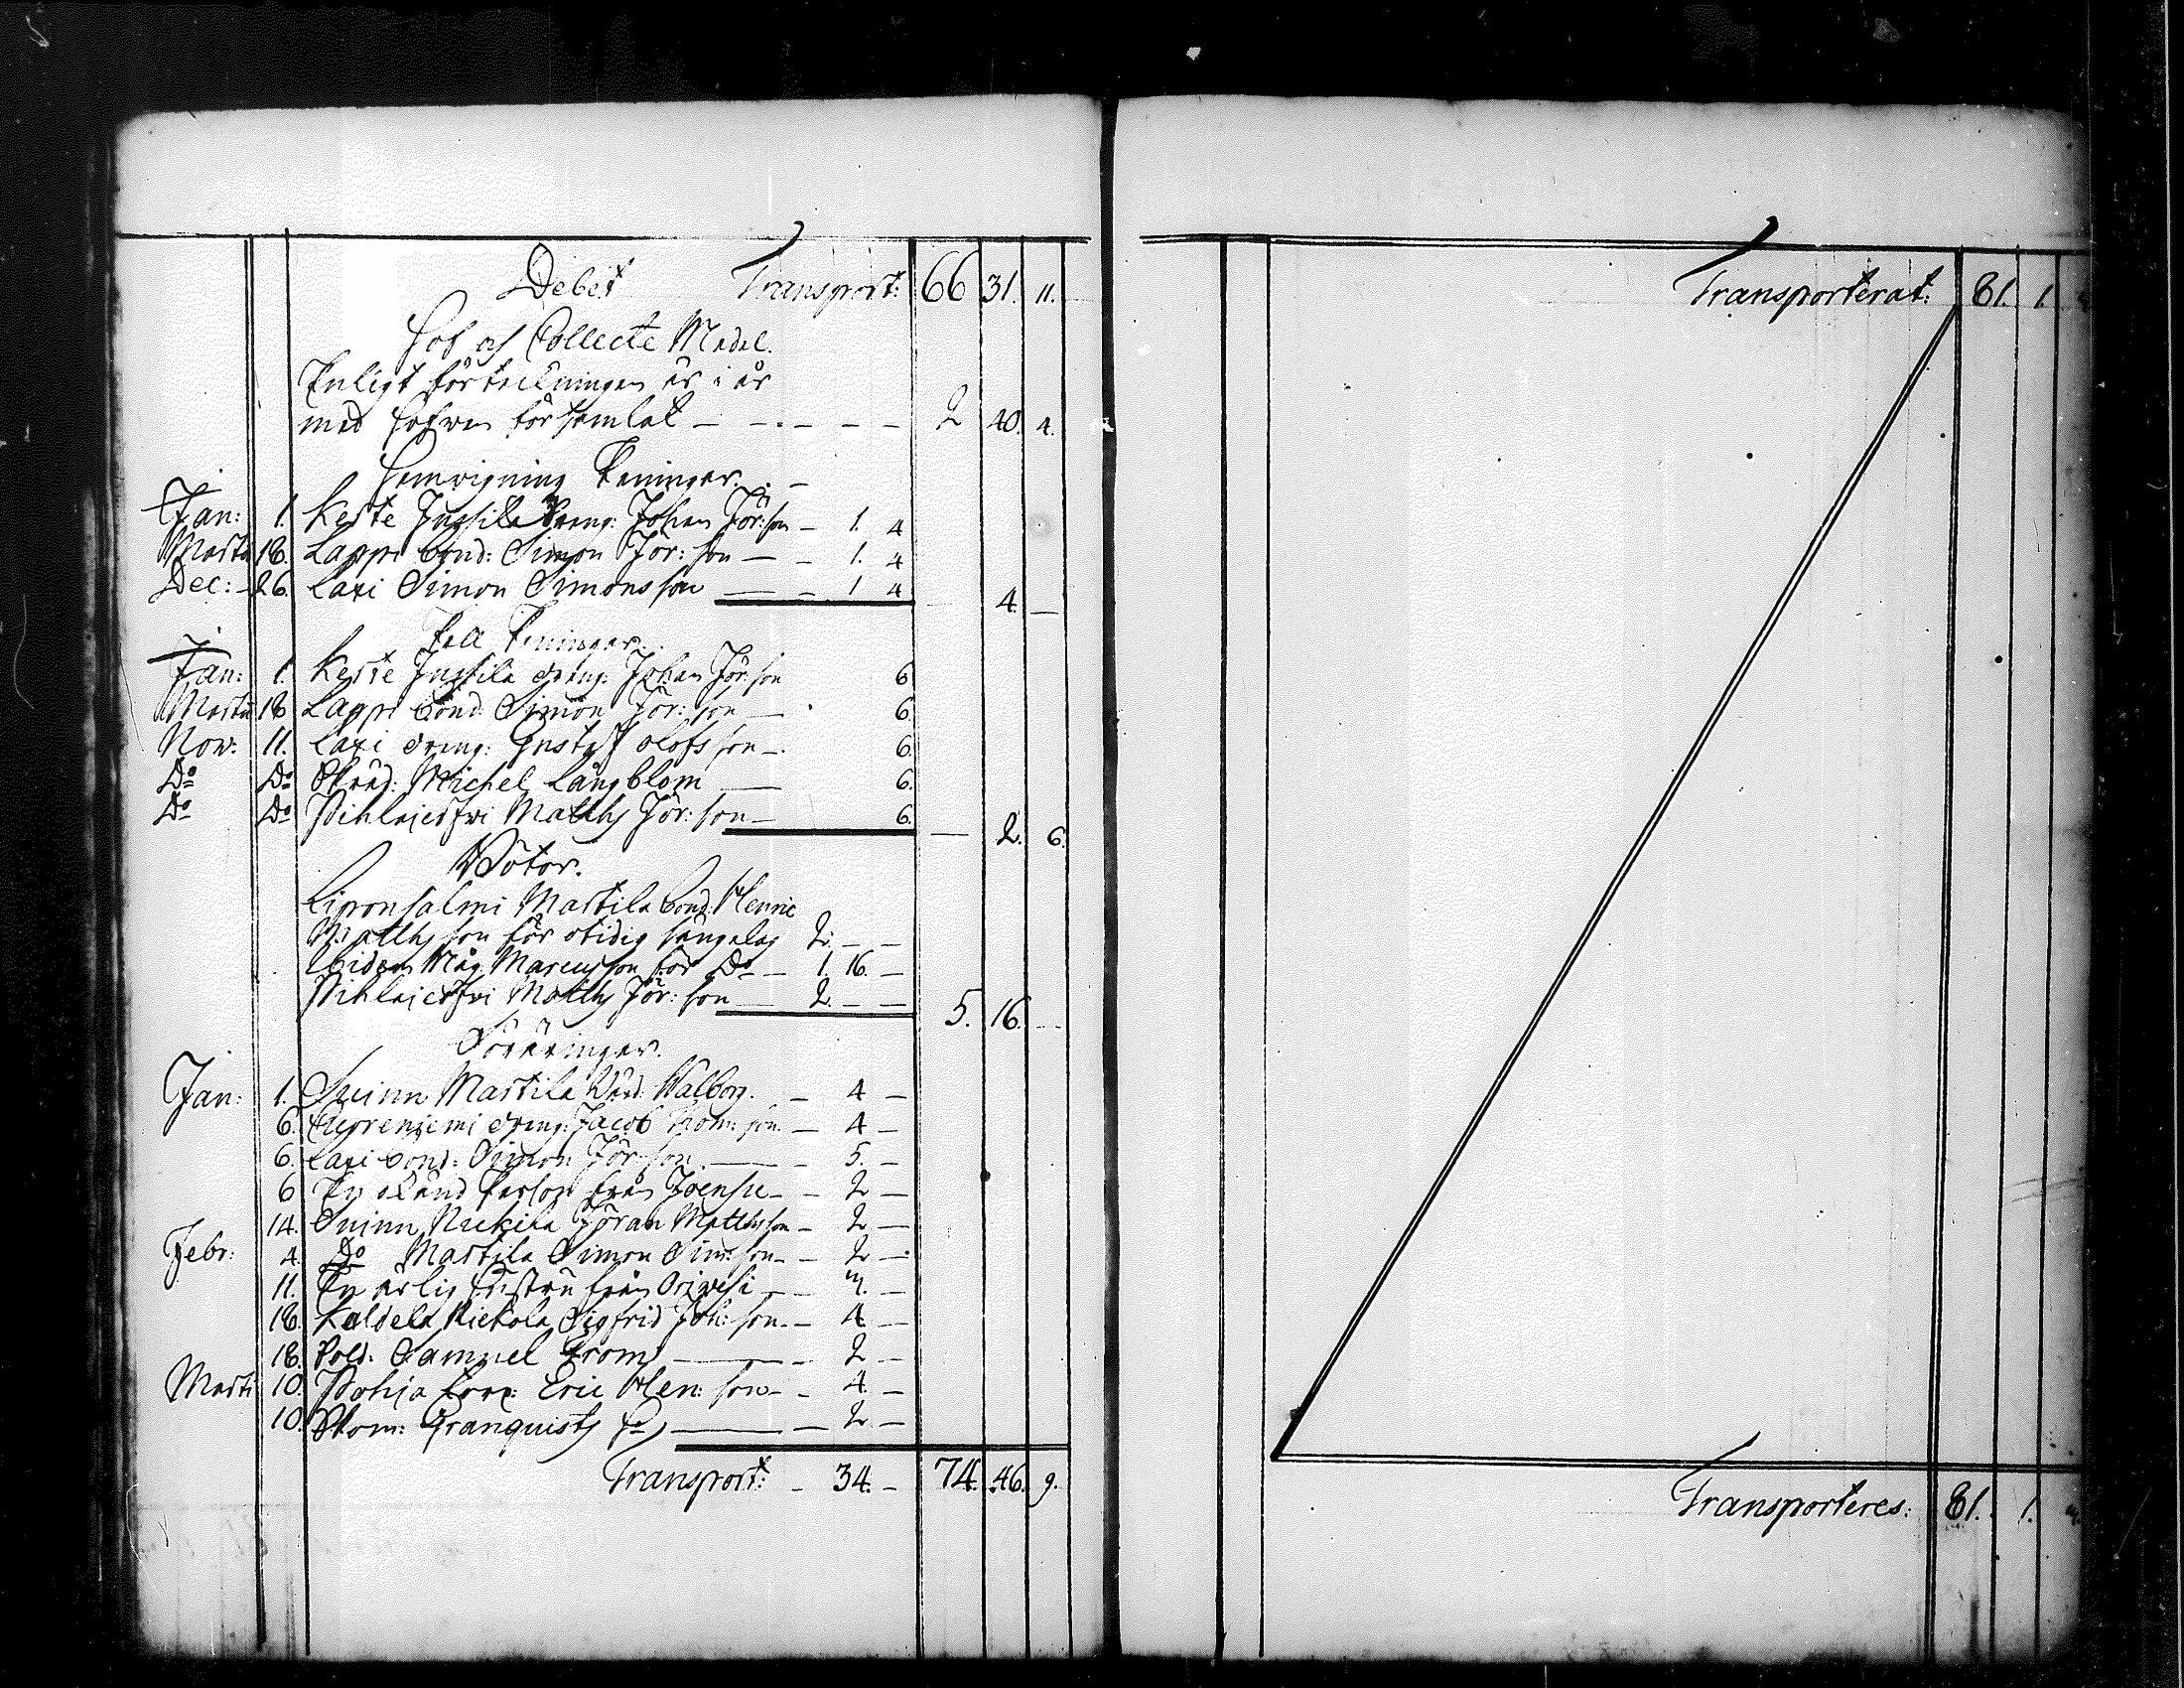 Debet Transport: 66 31. 11.
Hof och Collecte Medel.
Enligt förteckningen är i år
med håfwen församlat — — — — 2 40. 4.
Hemvigning Peninger. —
Jan: 1. Keste Jussila dreng: Johan Jör:son — 1. 4
Martii 18. Lappi bond: Simon Jör:son — — 1. 4
Dec: 26. Laxi Simon Simonsson — — 1 4 4. —
Pell Peninger.
Jan: 1. Keste Jussila dreng: Johan Jör:son 6
Martii 18 Lappi bond: Simon Jör:son — 6.
Now: 11. Laxi dreng: Gustaf Olofsson — 6.
Do Do Skräd: Michel Långblom — 6.
Do Do Pihlajedfwi Matths Jör:son — 6. — 2. 6.
Böter.
Liponsalmi Martila bond: Henric
Matthsson för otidig sängelag 2. — —
Måg Marcusson för Do — 1. 16. —
Pihlajedfwi Matths Jör:son — 2. — — 5. 16. —
Föräringar.
Jan: 1. Suinn Martila Wärd: Walborg. — 4 —
6. dreng: Jacob Thom:son — 4 —
6. Laxi bond: Simon Jör:son — — 5. —
6 En okänd Person från Joensu — — 2 —
14. Suinn Nickila Jöran Matthsson — 2 —
Febr: 4. Do Martila Simon Sim:son — — 2 —
11. En ärlig hustru från Oriwesi — — 3. —
18. Kaldela Nickola Sigfrid Joh:son — — 4 —
18. Sold: Samuel From — — 2 —
Marti 10. Pohja Eric Hen:son — — 4. —
10. Granquists — — 2. —
Transport: — 34. — 74. 46. 9.
Transporterat: 81. 1.
Transporteres: 81. 1.